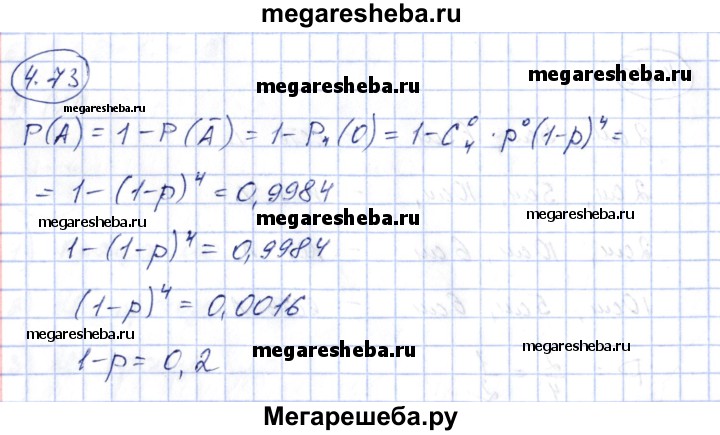 megaresheba.ru
4.73
megaresheba.ru
megaresheba.ru
megaresheba.ru
P(A) = 1 - P(Ā) = 1 - P₄(0) = 1 - C₄⁰ · p⁰(1-p)⁴ =
= 1 - (1-p)⁴ = 0,9984
megaresheba.ru
megaresheba.ru
megaresheba.ru
1 - (1-p)⁴ = 0,9984
(1-p)⁴ = 0,0016
megaresheba.ru
1-p = 0,2
megaresheba.ru
megaresheba.ru
Мегарешеба.ру